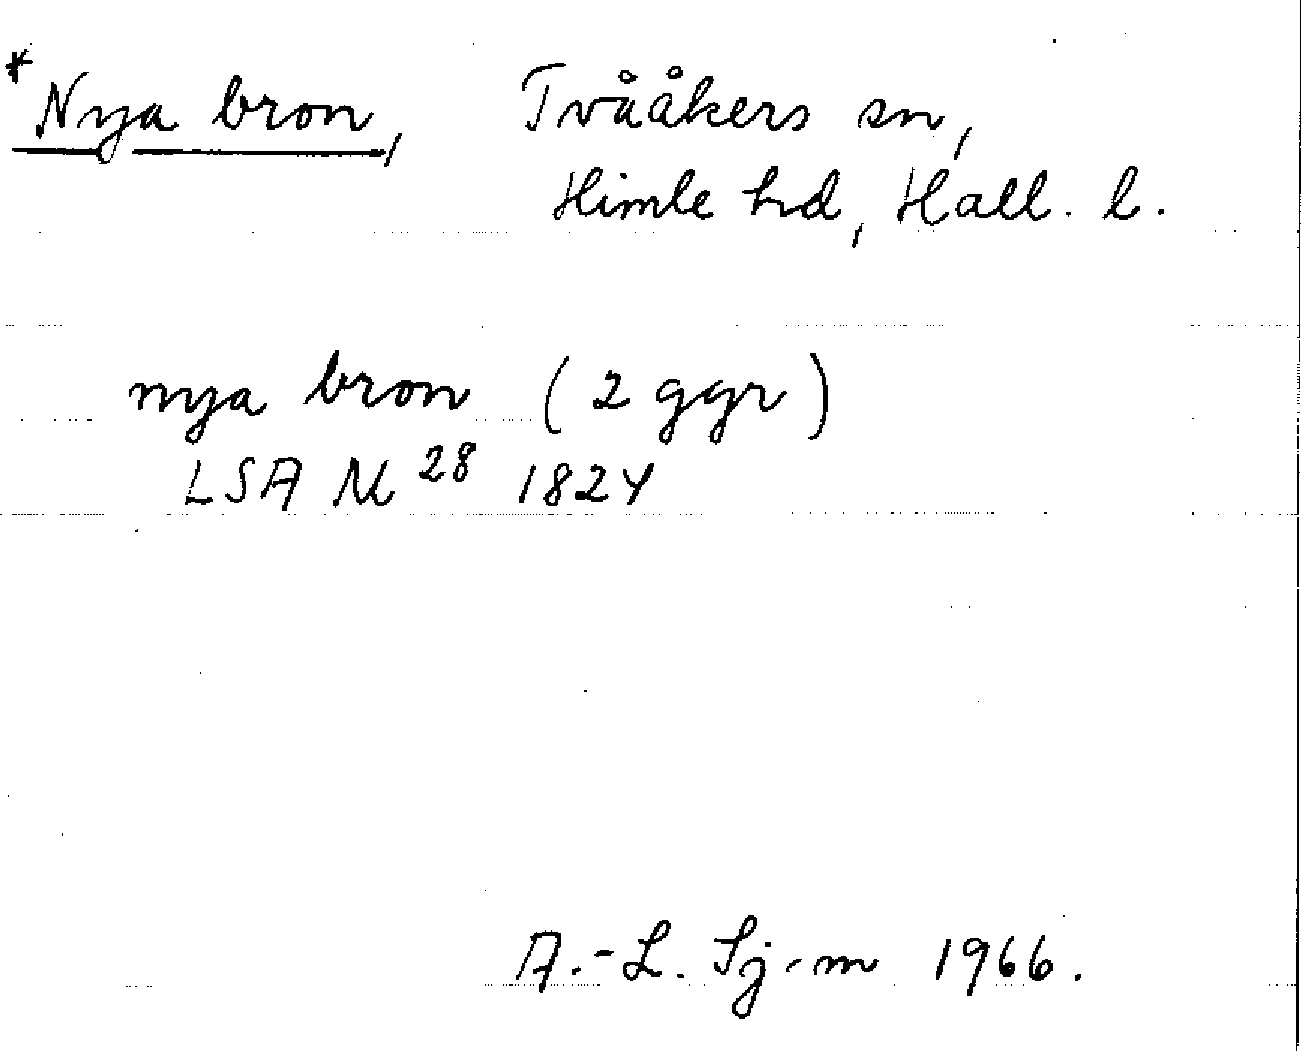 *Nya bron, Tvååkers sn,
Himle hd, Hall. l.
nya bron (2 ggr)
LSA N 28 1824
A.-L. Sj-m 1966.